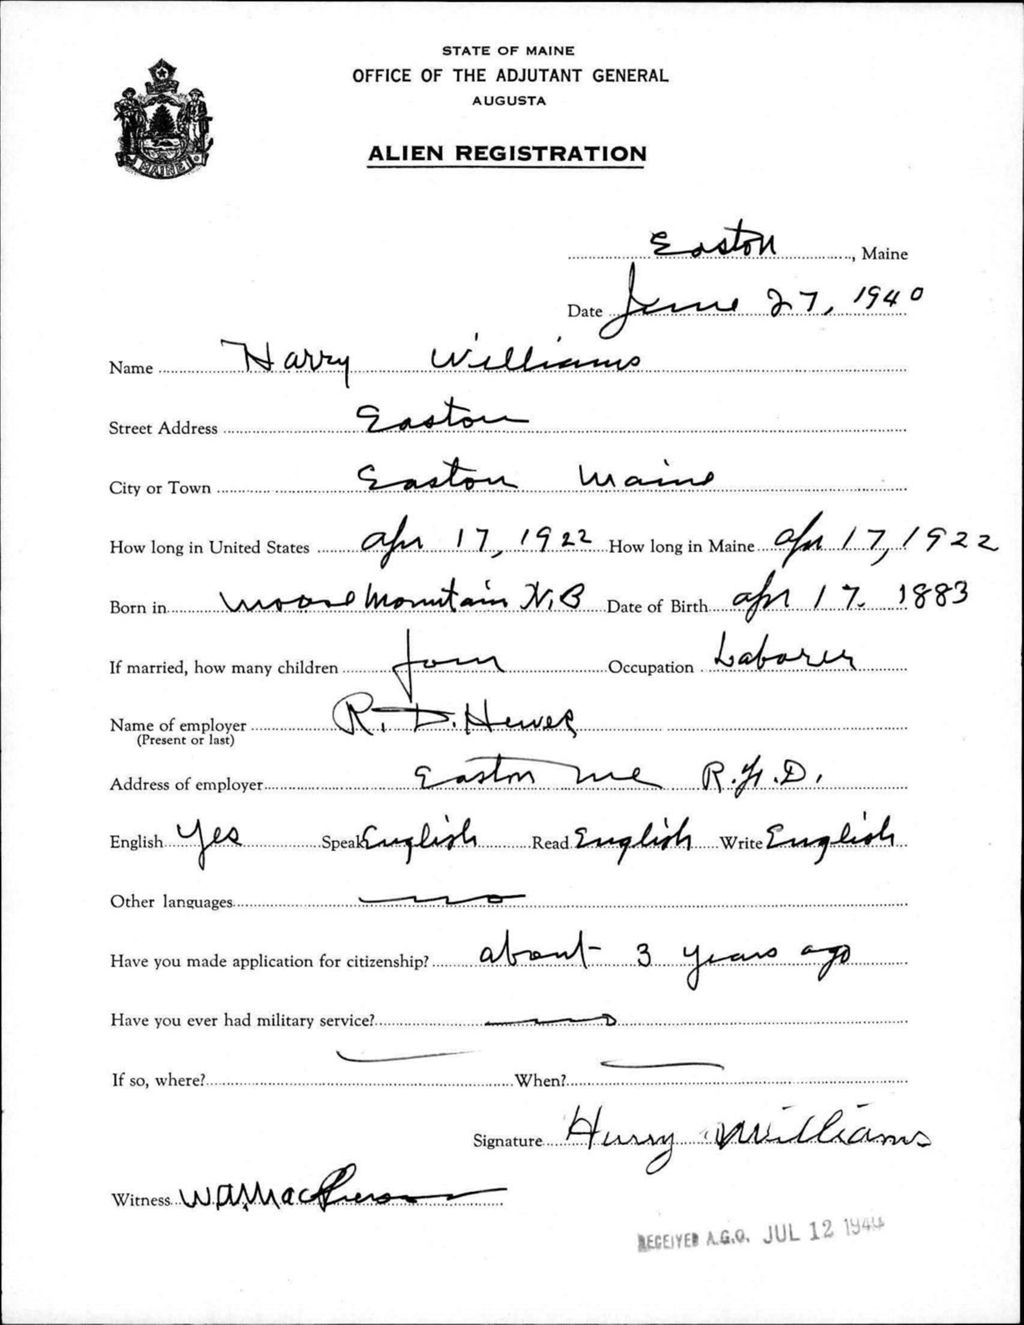 STATE OF MAINE
OFFICE OF THE ADJUTANT GENERAL
AUGUSTA
ALIEN REGISTRATION
MAINE
Easton, Maine
Date June 27, 1940
Name Harry Williams
Street Address Easton
City or Town Easton Maine
How long in United States Apr 17, 1922 How long in Maine Apr 17, 1922
Born in Moose Mountain N.B Date of Birth Apr 17. 1883
If married, how many children four Occupation Laborer
Name of employer R. D. Hewes
(Present or last)
Address of employer Easton Me R.F.D.
English Yes Speak English Read English Write English
Other languages no
Have you made application for citizenship? about 3 years ago
Have you ever had military service? no
If so, where? When?
Signature Harry Williams
Witness W.A. MacPherson
RECEIVED A.G.O. JUL 12 1940